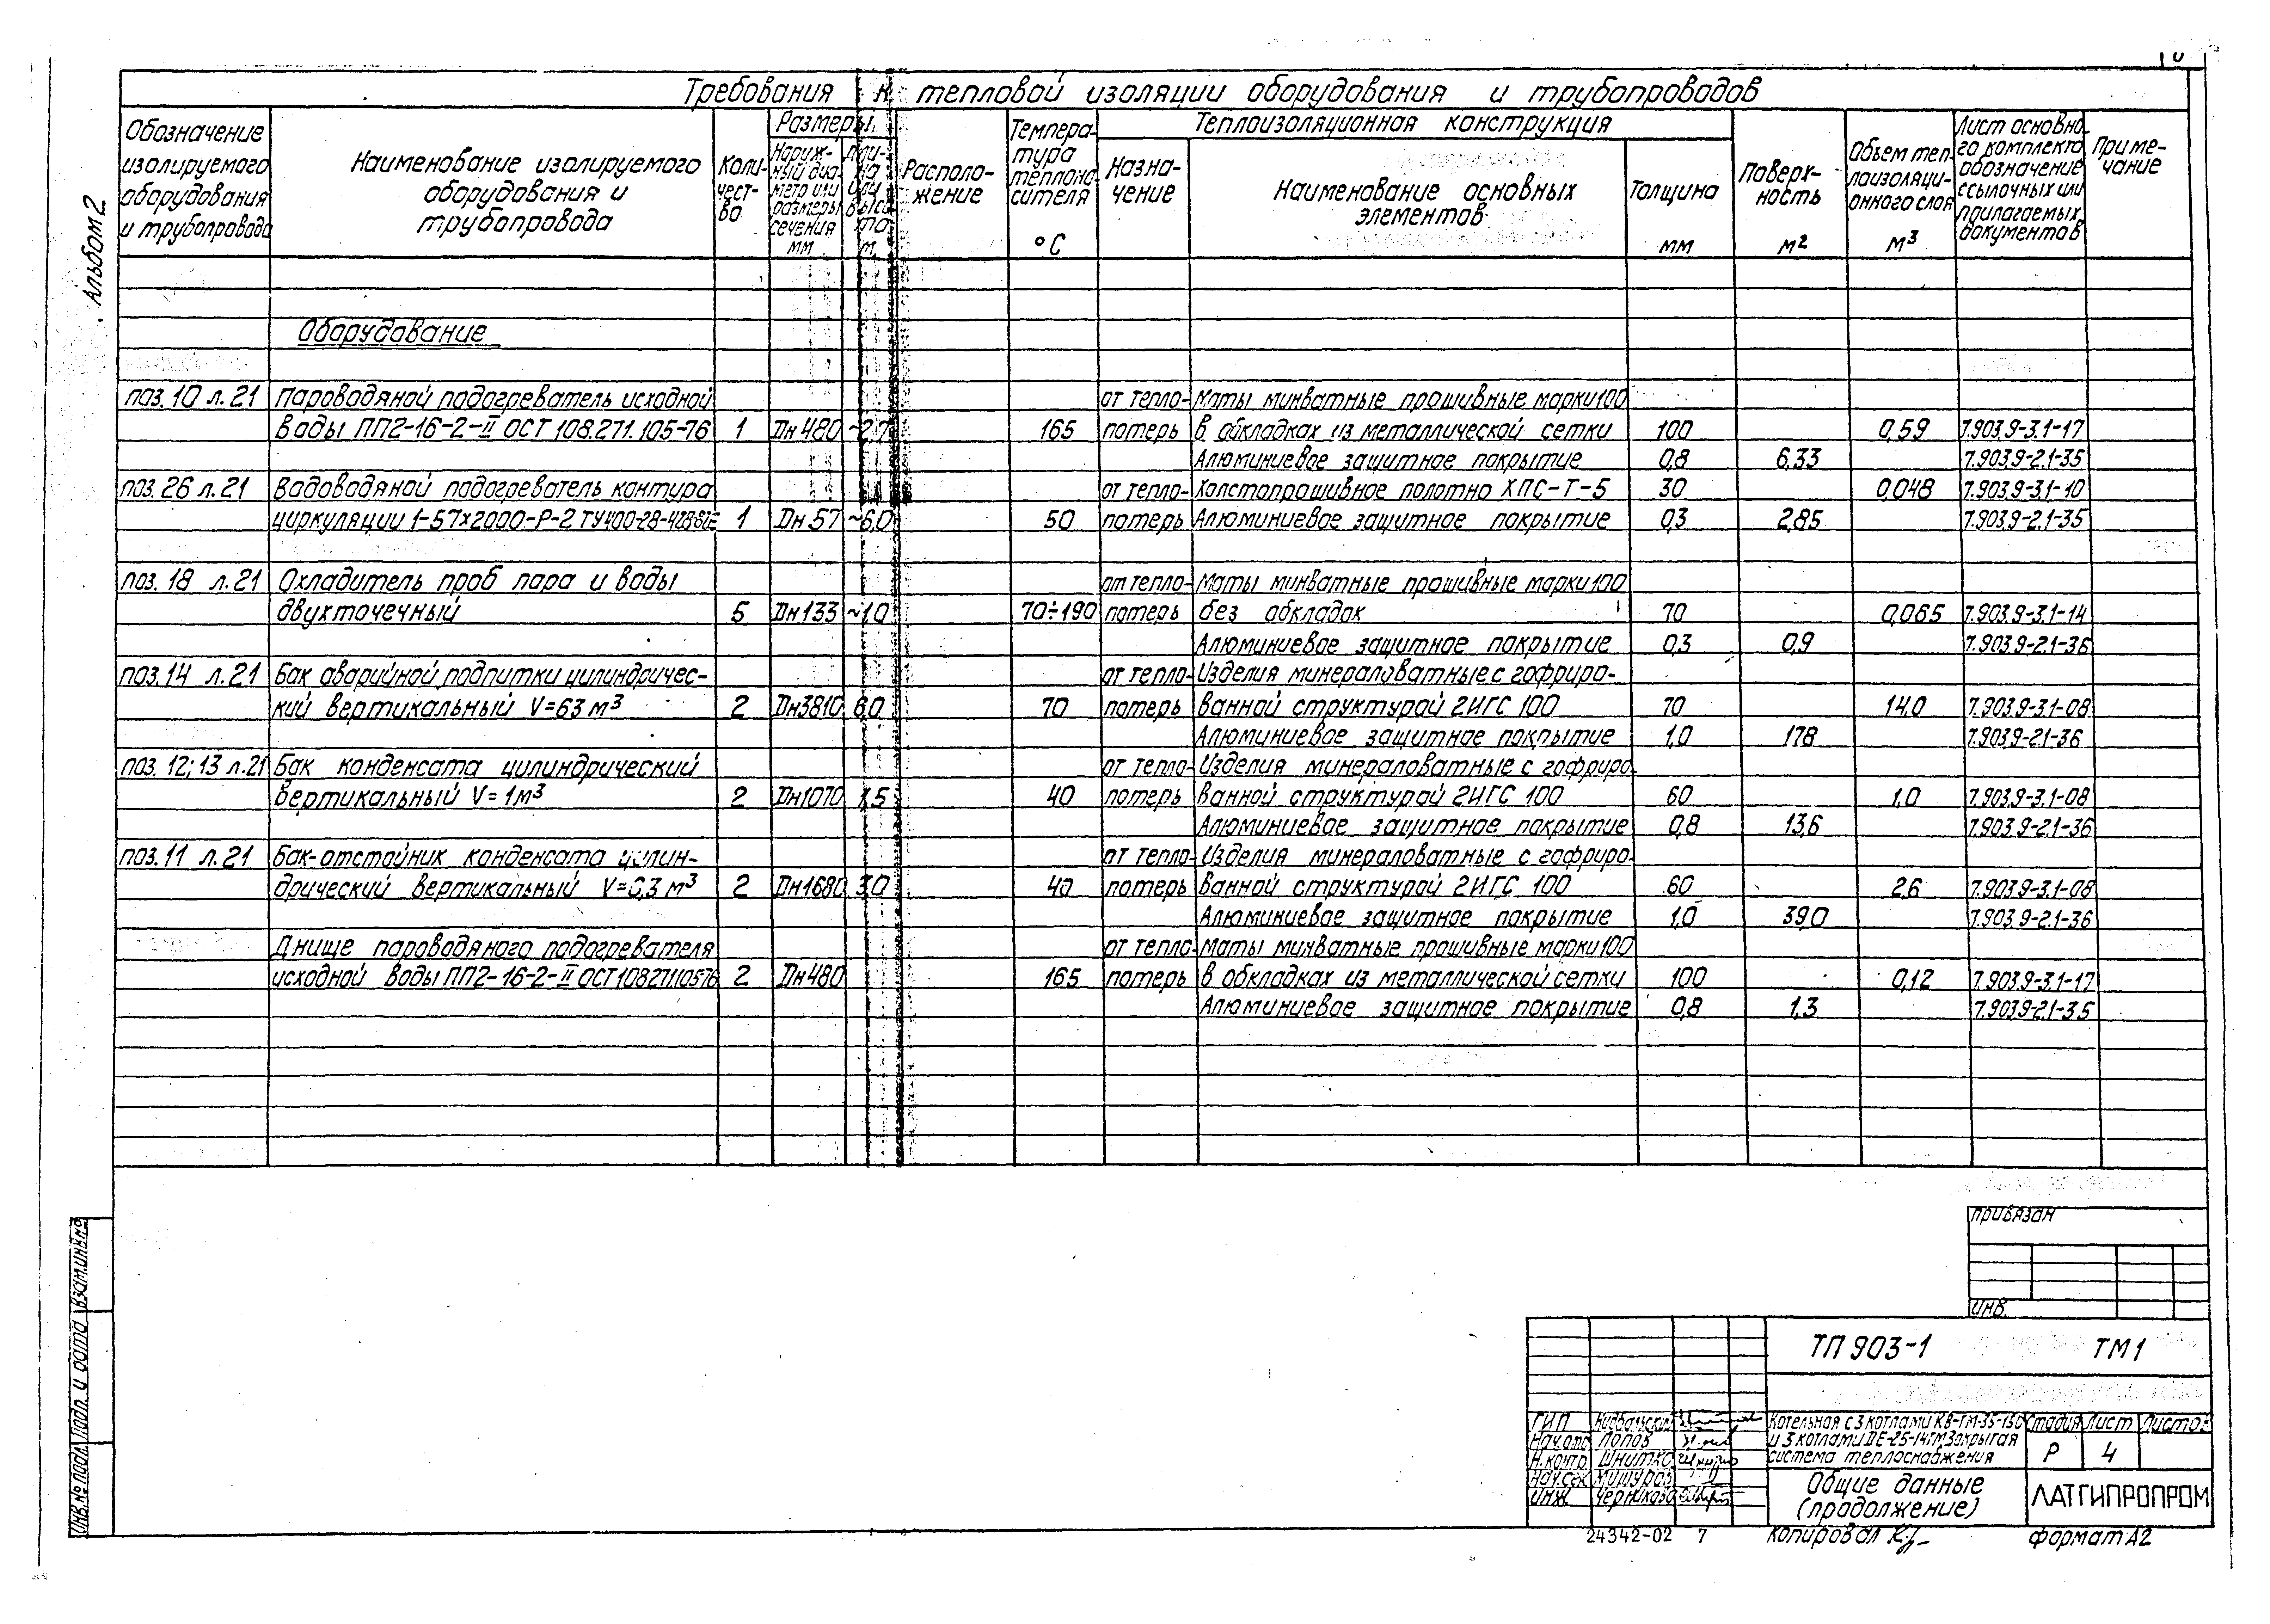 Альбом 2
Требования к тепловой изоляции оборудования и трубопроводов
Обозначение изолируемого оборудования и трубопровода
Наименование изолируемого оборудования и трубопровода
Количество
Размеры
Наружный диаметр или размеры сечения мм
Длина или высота м
Расположение
Температура теплоносителя °С
Теплоизоляционная конструкция
Назначение
Наименование основных элементов
Толщина мм
Поверхность м²
Объем теплоизоляционного слоя м³
Лист основного комплекта обозначение ссылочных или прилагаемых документов
Примечание
Оборудование
поз. 10 л. 21 Пароводяной подогреватель исходной от тепло- Маты минватные прошивные марки 100
воды ПП2-16-2-II ОСТ 108.271.105-76 1 Дн 480 ~2,7 165 потерь в обкладках из металлической сетки 100 0,59 7.903.9-3.1-17
Алюминиевое защитное покрытие 0,8 6,33 7.903.9-2.1-35
поз. 26 л. 21 Водоводяной подогреватель контура от тепло- Холстопрошивное полотно ХПС-Т-5 30 0,048 7.903.9-3.1-10
циркуляции 1-57х2000-Р-2 ТУ400-28-428-82Е 1 Дн 57 ~6,0 50 потерь Алюминиевое защитное покрытие 0,3 2,85 7.903.9-2.1-35
поз. 18 л. 21 Охладитель проб пара и воды от тепло- Маты минватные прошивные марки 100
двухточечный 5 Дн 133 ~1,0 70÷190 потерь без обкладок 70 0,065 7.903.9-3.1-14
Алюминиевое защитное покрытие 0,3 0,9 7.903.9-2.1-36
поз. 14 л. 21 Бак аварийной подпитки цилиндричес- от тепло- Изделия минераловатные с гофриро-
кий вертикальный V=63 м³ 2 Дн3810 6,0 70 потерь ванной структурой 2ИГС 100 70 14,0 7.903.9-3.1-08
Алюминиевое защитное покрытие 1,0 178 7.903.9-2.1-36
поз. 12; 13 л. 21 Бак конденсата цилиндрический от тепло- Изделия минераловатные с гофриро-
вертикальный V=1м³ 2 Дн1070 1,5 40 потерь ванной структурой 2ИГС 100 60 1,0 7.903.9-3.1-08
Алюминиевое защитное покрытие 0,8 13,6 7.903.9-2.1-36
поз. 11 л. 21 Бак-отстойник конденсата цилин- от тепло- Изделия минераловатные с гофриро-
дрический вертикальный 2 Дн1680 3,0 40 потерь ванной структурой 2ИГС 100 60 2,6 7.903.9-3.1-08
Алюминиевое защитное покрытие 1,0 39,0 7.903.9-2.1-36
Днище пароводяного подогревателя от тепло- Маты минватные прошивные марки 100
исходной воды ПП2-16-2-II ОСТ108.271.105-76 2 Дн480 165 потерь в обкладках из металлической сетки 100 0,12 7.903.9-3.1-17
Алюминиевое защитное покрытие 0,8 1,3 7.903.9-2.1-35
Инв. № подл. Подп. и дата Взам. инв. №
Привязан
Инв.
ТП 903-1 ТМ1
ГИП
Нач. отд. Попов
Н. контр. Шнитко
Нач. сек.
Инж. Черникова
Котельная с 3 котлами КВ-ГМ-35-150
и 3 котлами ДЕ-25-14ГМ Закрытая
система теплоснабжения
Стадия Лист Листов
Р 4
Общие данные
(продолжение)
ЛАТГИПРОПРОМ
24342-02 7 Копировал Формат А2